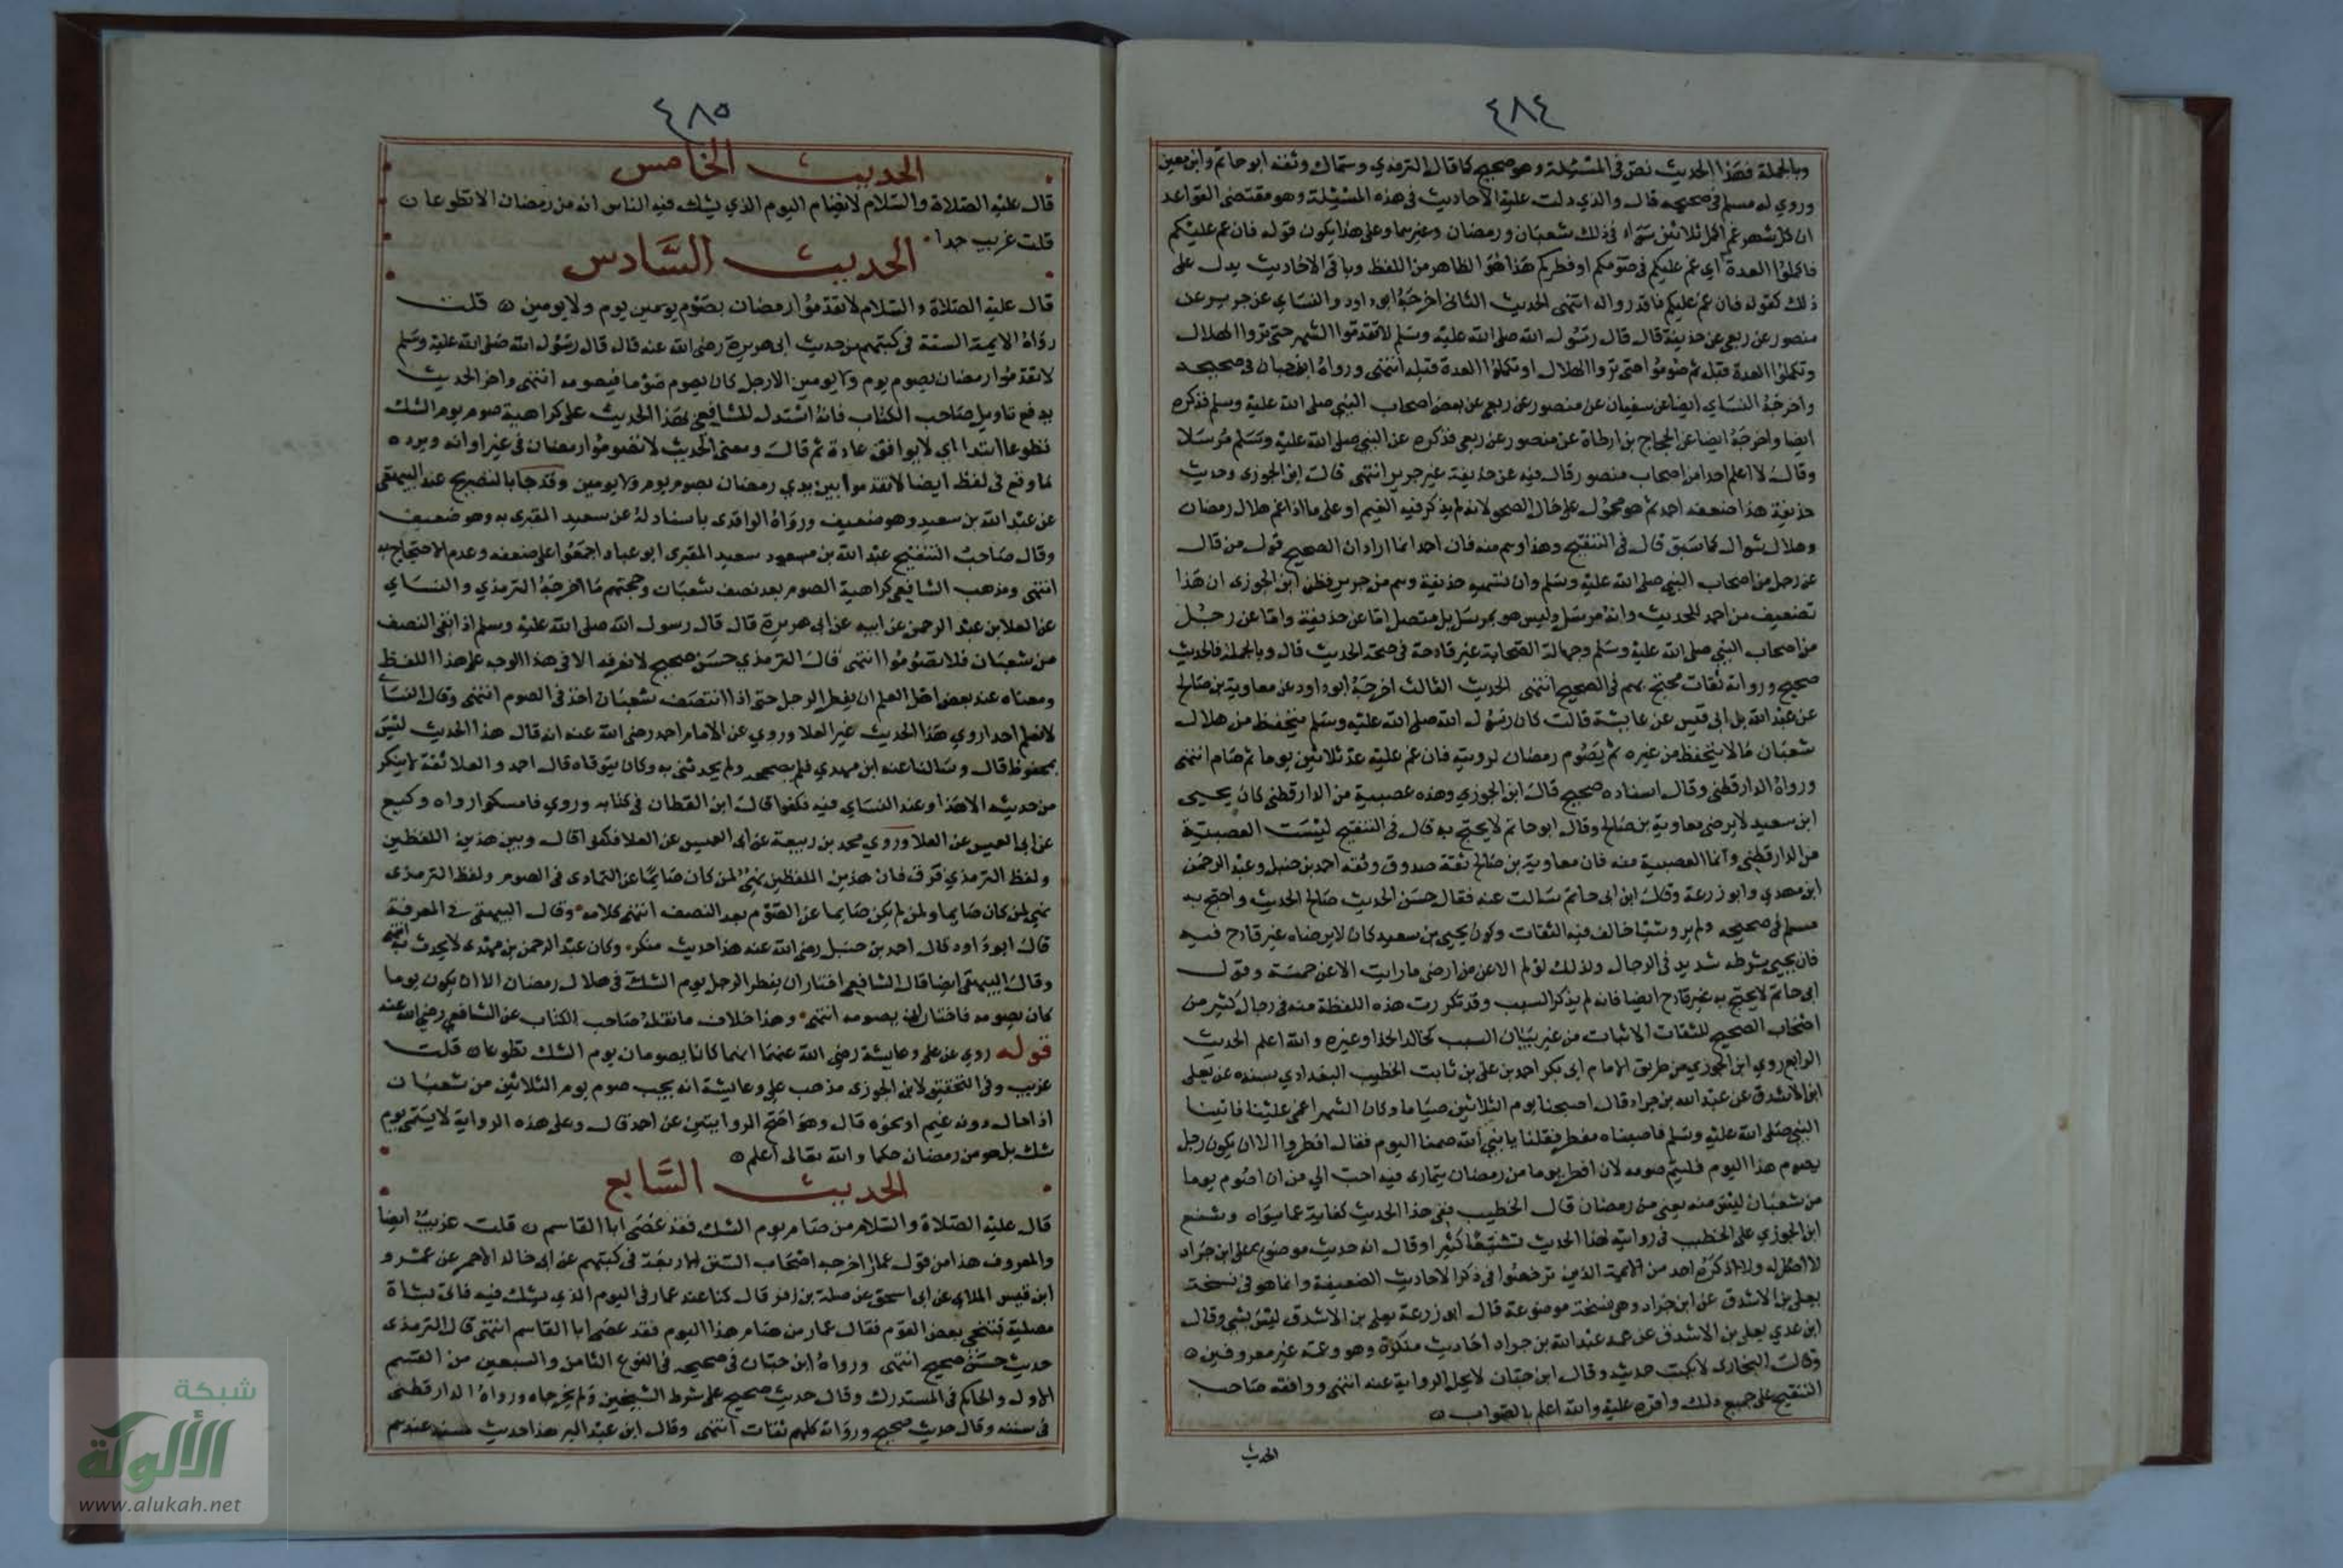 ٤٨٤
وبالجملة فهذا الحديث نص في المسئلة وهو صحيح كما قال الترمذي وسماك وثقه ابو حاتم وابن معين
وروي له مسلم في صحيحه قال والذي دلت عليه الاحاديث في هذه المسئلة وهو مقتضى القواعد
ان كل شهر غم اكمل ثلاثين سواء في ذلك شعبان ورمضان وغيرهما وعلى هذا يكون قوله فان غم عليكم
فاكملوا العدة اي غم عليكم في صومكم او فطركم هذا هو الظاهر من اللفظ وباقي الاحاديث يدل على
ذلك كقوله فان غم عليكم فاقدروا له انتهى الحديث الثاني اخرجه ابو داود والنساي عن جرير عن
منصور عن ربعي عن حذيفة قال قال رسول الله صلى الله عليه وسلم لا تقدموا الشهر حتى تروا الهلال
وتكملوا العدة قبله ثم صوموا حتى تروا الهلال او تكملوا العدة قبله انتهى ورواه ابن حبان في صحيحه
واخرجه النساي ايضا عن سفيان عن منصور عن ربعي عن بعض اصحاب النبي صلى الله عليه وسلم فذكره
ايضا واخرجه ايضا عن الحجاج بن ارطاة عن منصور عن ربعي فذكره عن النبي صلى الله عليه وسلم مرسلا
وقال لا اعلم احدا من اصحاب منصور قال فيه عن حذيفة غير جرير انتهى قال ابن الجوزي وحديث
حذيفة هذا ضعفه احمد ثم هو محمول على حال الصحو لانه لم يذكر فيه الغيم او على ما اذا غم هلال رمضان
وهلال شوال كما سبق قال في التنقيح وهذا وهم منه فان احمد انما اراد ان الصحيح قول من قال
عن رجل من اصحاب النبي صلى الله عليه وسلم وان تسمية حذيفة وهم من جرير فظن ابن الجوزي ان هذا
تضعيف من احمد للحديث وانه مرسل وليس هو بمرسل بل متصل اما عن حذيفة واما عن رجل
من اصحاب النبي صلى الله عليه وسلم وجهالة الصحابة غير قادحة في صحة الحديث قال وبالجملة فالحديث
صحيح ورواته ثقات محتج بهم في الصحيح انتهى الحديث الثالث اخرجه ابو داود عن معاوية بن صالح
عن عبد الله بن ابي قيس عن عايشة قالت كان رسول الله صلى الله عليه وسلم يتحفظ من هلال
شعبان ما لا يتحفظ من غيره ثم يصوم رمضان لرويته فان غم عليه عد ثلاثين يوما ثم صام انتهى
ورواه الدارقطني وقال اسناده صحيح قال ابن الجوزي وهذه عصبية من الدارقطني كان يحيى
ابن سعيد لا يرضى معاوية بن صالح وقال ابو حاتم لا يحتج به قال في التنقيح ليست العصبية
من الدارقطني وانما العصبية منه فان معاوية بن صالح ثقة صدوق وثقه احمد بن حنبل وعبد الرحمن
ابن مهدي وابو زرعة وقال ابن ابي حاتم سالت عنه فقال حسن الحديث صالح الحديث واحتج به
مسلم في صحيحه ولم يرو شيئا خالف فيه الثقات وكون يحيى بن سعيد كان لا يرضاه غير قادح فيه
فان يحيى شرطه شديد في الرجال ولذلك لو لم الا عن من ارضى ما رايت الا عن خمسة وقول
ابي حاتم لا يحتج به غير قادح ايضا فانه لم يذكر السبب وقد تكررت هذه اللفظة منه في رجال كثير من
اصحاب الصحيح للثقات الاثبات من غير بيان السبب كخالد الحذا وغيره والله اعلم الحديث
الرابع روي ابن الجوزي من طريق الامام ابي بكر احمد بن علي بن ثابت الخطيب البغدادي بسنده عن يعلى
ابن الاشدق عن عبد الله بن جراد قال اصبحنا يوم الثلاثين صياما وكان الشهر اغمي علينا فاتينا
النبي صلى الله عليه وسلم فاصبناه مفطر فقلنا يا نبي الله صمنا اليوم فقال افطروا الا ان يكون رجل
يصوم هذا اليوم فليتم صومه لان افطر يوما من رمضان يتمارى فيه احب الي من ان اصوم يوما
من شعبان ليس منه يعني من رمضان قال الخطيب ففي هذا الحديث كفاية عما سواه وشنع
ابن الجوزي على الخطيب في روايته لهذا الحديث تشنيعا كثيرا وقال انه حديث موضوع على ابن جراد
لا اصل له ولا ذكره احد من الايمة الذين ترخصوا في ذكر الاحاديث الضعيفة وانما هو في نسخة
يعلى بن الاشدق عن ابن جراد وهي نسخة موضوعة قال ابو زرعة يعلى بن الاشدق ليس بشي وقال
ابن عدي يعلى بن الاشدق عن عمه عبد الله بن جراد احاديث منكرة وهو وعمه غير معروفين
وقال البخاري لا يكتب حديثه وقال ابن حبان لا يحل الرواية عنه انتهى ووافقه صاحب
التنقيح على جميع ذلك واقره عليه والله اعلم بالصواب
الحديث
٤٨٥
الحديث الخامس
قال عليه الصلاة والسلام لا يصام اليوم الذي يشك فيه الناس انه من رمضان الا تطوعا
قلت غريب جدا
الحديث السادس
قال عليه الصلاة والسلام لا تقدموا رمضان بصوم يوم ولا يومين قلت
رواه الايمة الستة في كتبهم من حديث ابي هريرة رضى الله عنه قال قال رسول الله صلى الله عليه وسلم
لا تقدموا رمضان بصوم يوم ولا يومين الا رجل كان يصوم صوما فيصومه انتهى واخر الحديث
يدفع تاويل صاحب الكتاب فانه استدل للشافعي بهذا الحديث على كراهية صوم يوم الشك
تطوعا ابتدا اي لا يوافق عادة ثم قال ومعنى الحديث لا تصوموا رمضان في غير اوانه ويرده
ما وقع في لفظ ايضا لا تقدموا بين يدي رمضان بصوم يوم ولا يومين وقد جا بالتصريح عند البيهقي
عن عبد الله بن سعيد وهو ضعيف ورواه الواقدي باسناد له عن سعيد المقبري به وهو ضعيف
وقال صاحب التنقيح عبد الله بن سعيد المقبري ابو عباد اجمعوا على ضعفه وعدم الاحتجاج به
انتهى ومذهب الشافعي كراهية الصوم بعد نصف شعبان وحجتهم ما اخرجه الترمذي والنساي
عن العلا بن عبد الرحمن عن ابيه عن ابي هريرة قال قال رسول الله صلى الله عليه وسلم اذا بقي النصف
من شعبان فلا تصوموا انتهى قال الترمذي حسن صحيح لا نعرفه الا في هذا الوجه على هذا اللفظ
ومعناه عند بعض اهل العلم ان يفطر الرجل حتى اذا انتصف شعبان اخذ في الصوم انتهى وقال النساي
لا نعلم احدا روي هذا الحديث غير العلا وروي عن الامام احمد رضى الله عنه انه قال هذا الحديث ليس
بمحفوظ قال وسالنا عنه ابن مهدي فلم يصححه ولم يحدثني به وكان يتوقاه قال احمد والعلا ثقة لا ينكر
من حديثه الا هذا وعند النساي فيه فكفوا قال ابن القطان في كتابه وروي فامسكوا رواه وكيع
عن ابي العميس عن العلا وروي محمد بن ربيعة عن ابي العميس عن العلا فكفوا قال وبين هذين اللفظين
ولفظ الترمذي فرق فان هذين اللفظين نهي لمن كان صايما عن التمادى في الصوم ولفظ الترمذي
نهي لمن كان صايما ولمن لم يكن صايما عن الصوم بعد النصف انتهى كلامه وقال البيهقي في المعرفة
قال ابو داود قال احمد بن حنبل رضى الله عنه هذا حديث منكر وكان عبد الرحمن بن مهدي لا يحدث به انتهى
وقال البيهقي ايضا قال الشافعي اختار ان يفطر الرجل يوم الشك في هلال رمضان الا ان يكون يوما
كان يصومه فاختار له يصومه انتهى وهذا خلاف ما نقله صاحب الكتاب عن الشافعي رضى الله عنه
قوله روي عن علي وعايشة رضى الله عنهما انهما كانا يصومان يوم الشك تطوعا قلت
غريب وفي التحقيق لابن الجوزي مذهب علي وعايشة انه يجب صوم يوم الثلاثين من شعبان
اذا حال دونه غيم او نحوه قال وهو اصح الروايتين عن احمد قال وعلى هذه الرواية لا يسمى يوم
شك بل هو من رمضان حكما والله تعالى اعلم
الحديث السابع
قال عليه الصلاة والسلام من صام يوم الشك فقد عصى ابا القاسم قلت غريب ايضا
والمعروف هذا من قول عمار اخرجه اصحاب السنن الاربعة في كتبهم عن ابي خالد الاحمر عن عمرو
ابن قيس الملاي عن ابي اسحق عن صلة بن زفر قال كنا عند عمار في اليوم الذي يشك فيه فاتى بشاة
مصلية فتنحى بعض القوم فقال عمار من صام هذا اليوم فقد عصى ابا القاسم انتهى قال الترمذي
حديث حسن صحيح انتهى ورواه ابن حبان في صحيحه في النوع الثامن والسبعين من القسم
الاول والحاكم في المستدرك وقال حديث صحيح على شرط الشيخين ولم يخرجاه ورواه الدارقطني
في سننه وقال حديث صحيح ورواته كلهم ثقات انتهى وقال ابن عبد البر هذا حديث مسند عندهم
شبكة
الألوكة
www.alukah.net